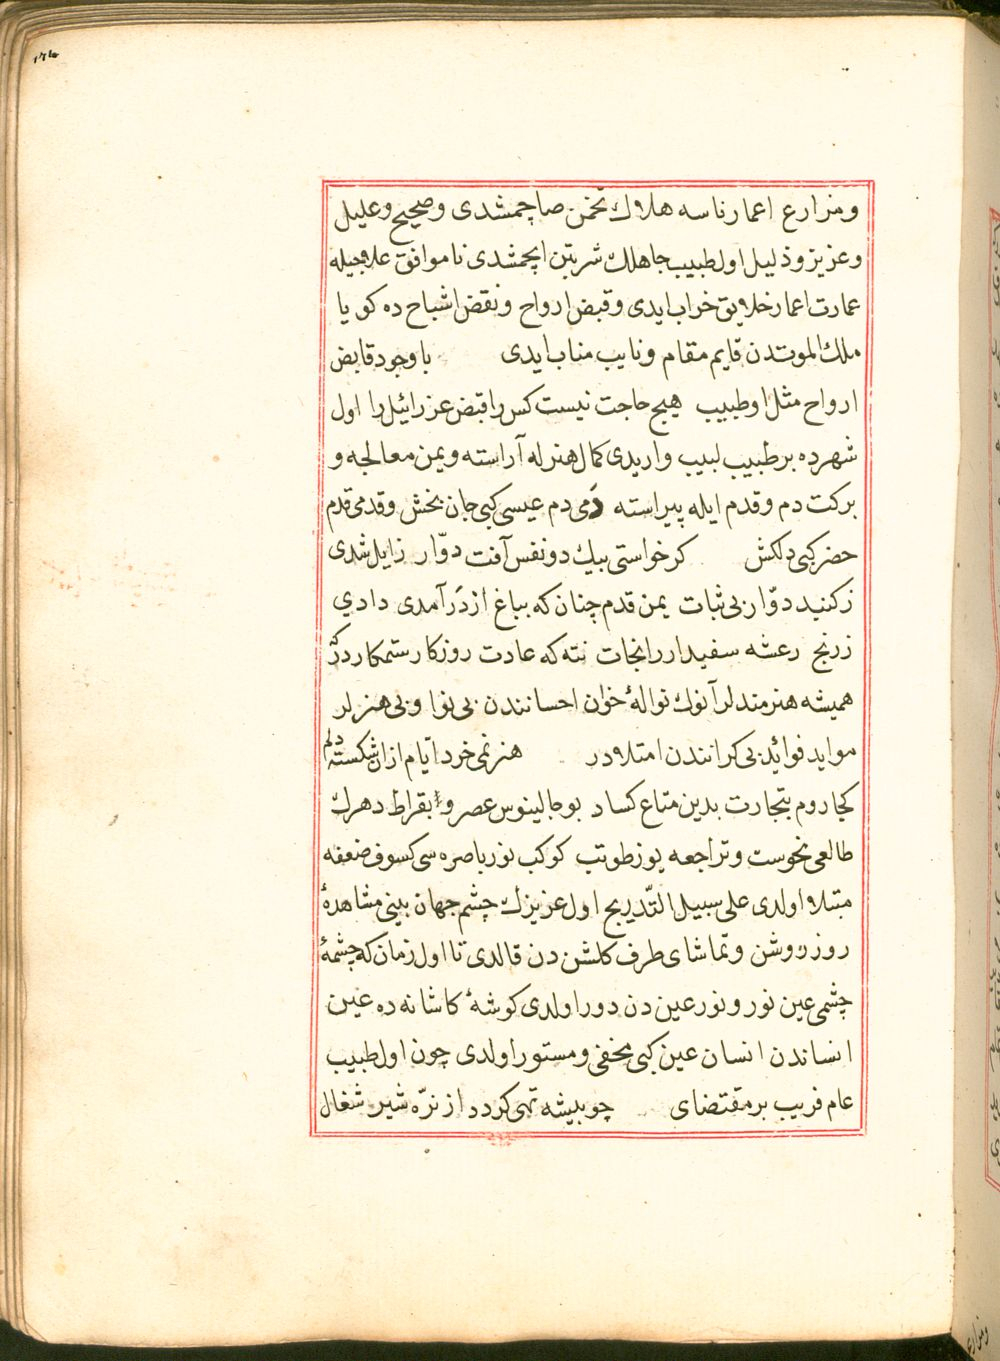 ومزارع اعمار ناسه هلاك تخمن صاچمشدی وصحیح وعلیل
وعزیز وذلیل اول طبیب جاهلك شربتن ایچمشدی ناموافق علاجیله
عمارت اعمار خلایق خراب ایدی وقبض ارواح ونقض اشباح ده کویا
ملك الموتدن قایم مقام ونایب مناب ایدی باوجود قابض
ارواح مثل او طبیب هیچ حاجت نیست کس را قبض عزرائیل را اول
شهرده بر طبیب لبیب وار یدی کمال هنرله آراسته ویمن معالجه و
برکت دم وقدم ایله پیراسته دمی دم عیسی کبی جان بخش وقدمی قدم
حضر کبی دلکش کر خواستی بیك دو نفس آفت دوّار زایل شدی
ز کنبد دوّار بی ثبات یمن قدم چنان که بباغ ار درآمدی دادی
ز رنج رعشه سفیدار را نجات نته که عادت روزکار ستمکار در
همیشه هنرمندلر آنوك نوالهٔ خوان احسانندن بی نوا وبی هنرلر
مواید فوائد بی کرانندن امتلاده در هنر نمی خرد ایّام ازان شکسته دلم
کجا روم بتجارت بدین متاع کساد بو جالینوس عصر وبقراط دهرك
طالعی نحوست وتراجعه یوز طوتب کوکب نور باصره سی کسوف ضعفه
مبتلا اولدی علی سبیل التّدریج اول عزیزك چشم جهان بینی مشاهدهٔ
روز روشن وتماشای طرف کلشن دن قالدی تا اول زمان که چشمهٔ
چشمی عین نور ونور عین دن دور اولدی کوشهٔ کاشانه ده عین
انساندن انسان عین کبی مخفی ومستور اولدی چون اول طبیب
عام فریب بر مقتضای چو بیشه تهی کردد از نرّه شیر شغال